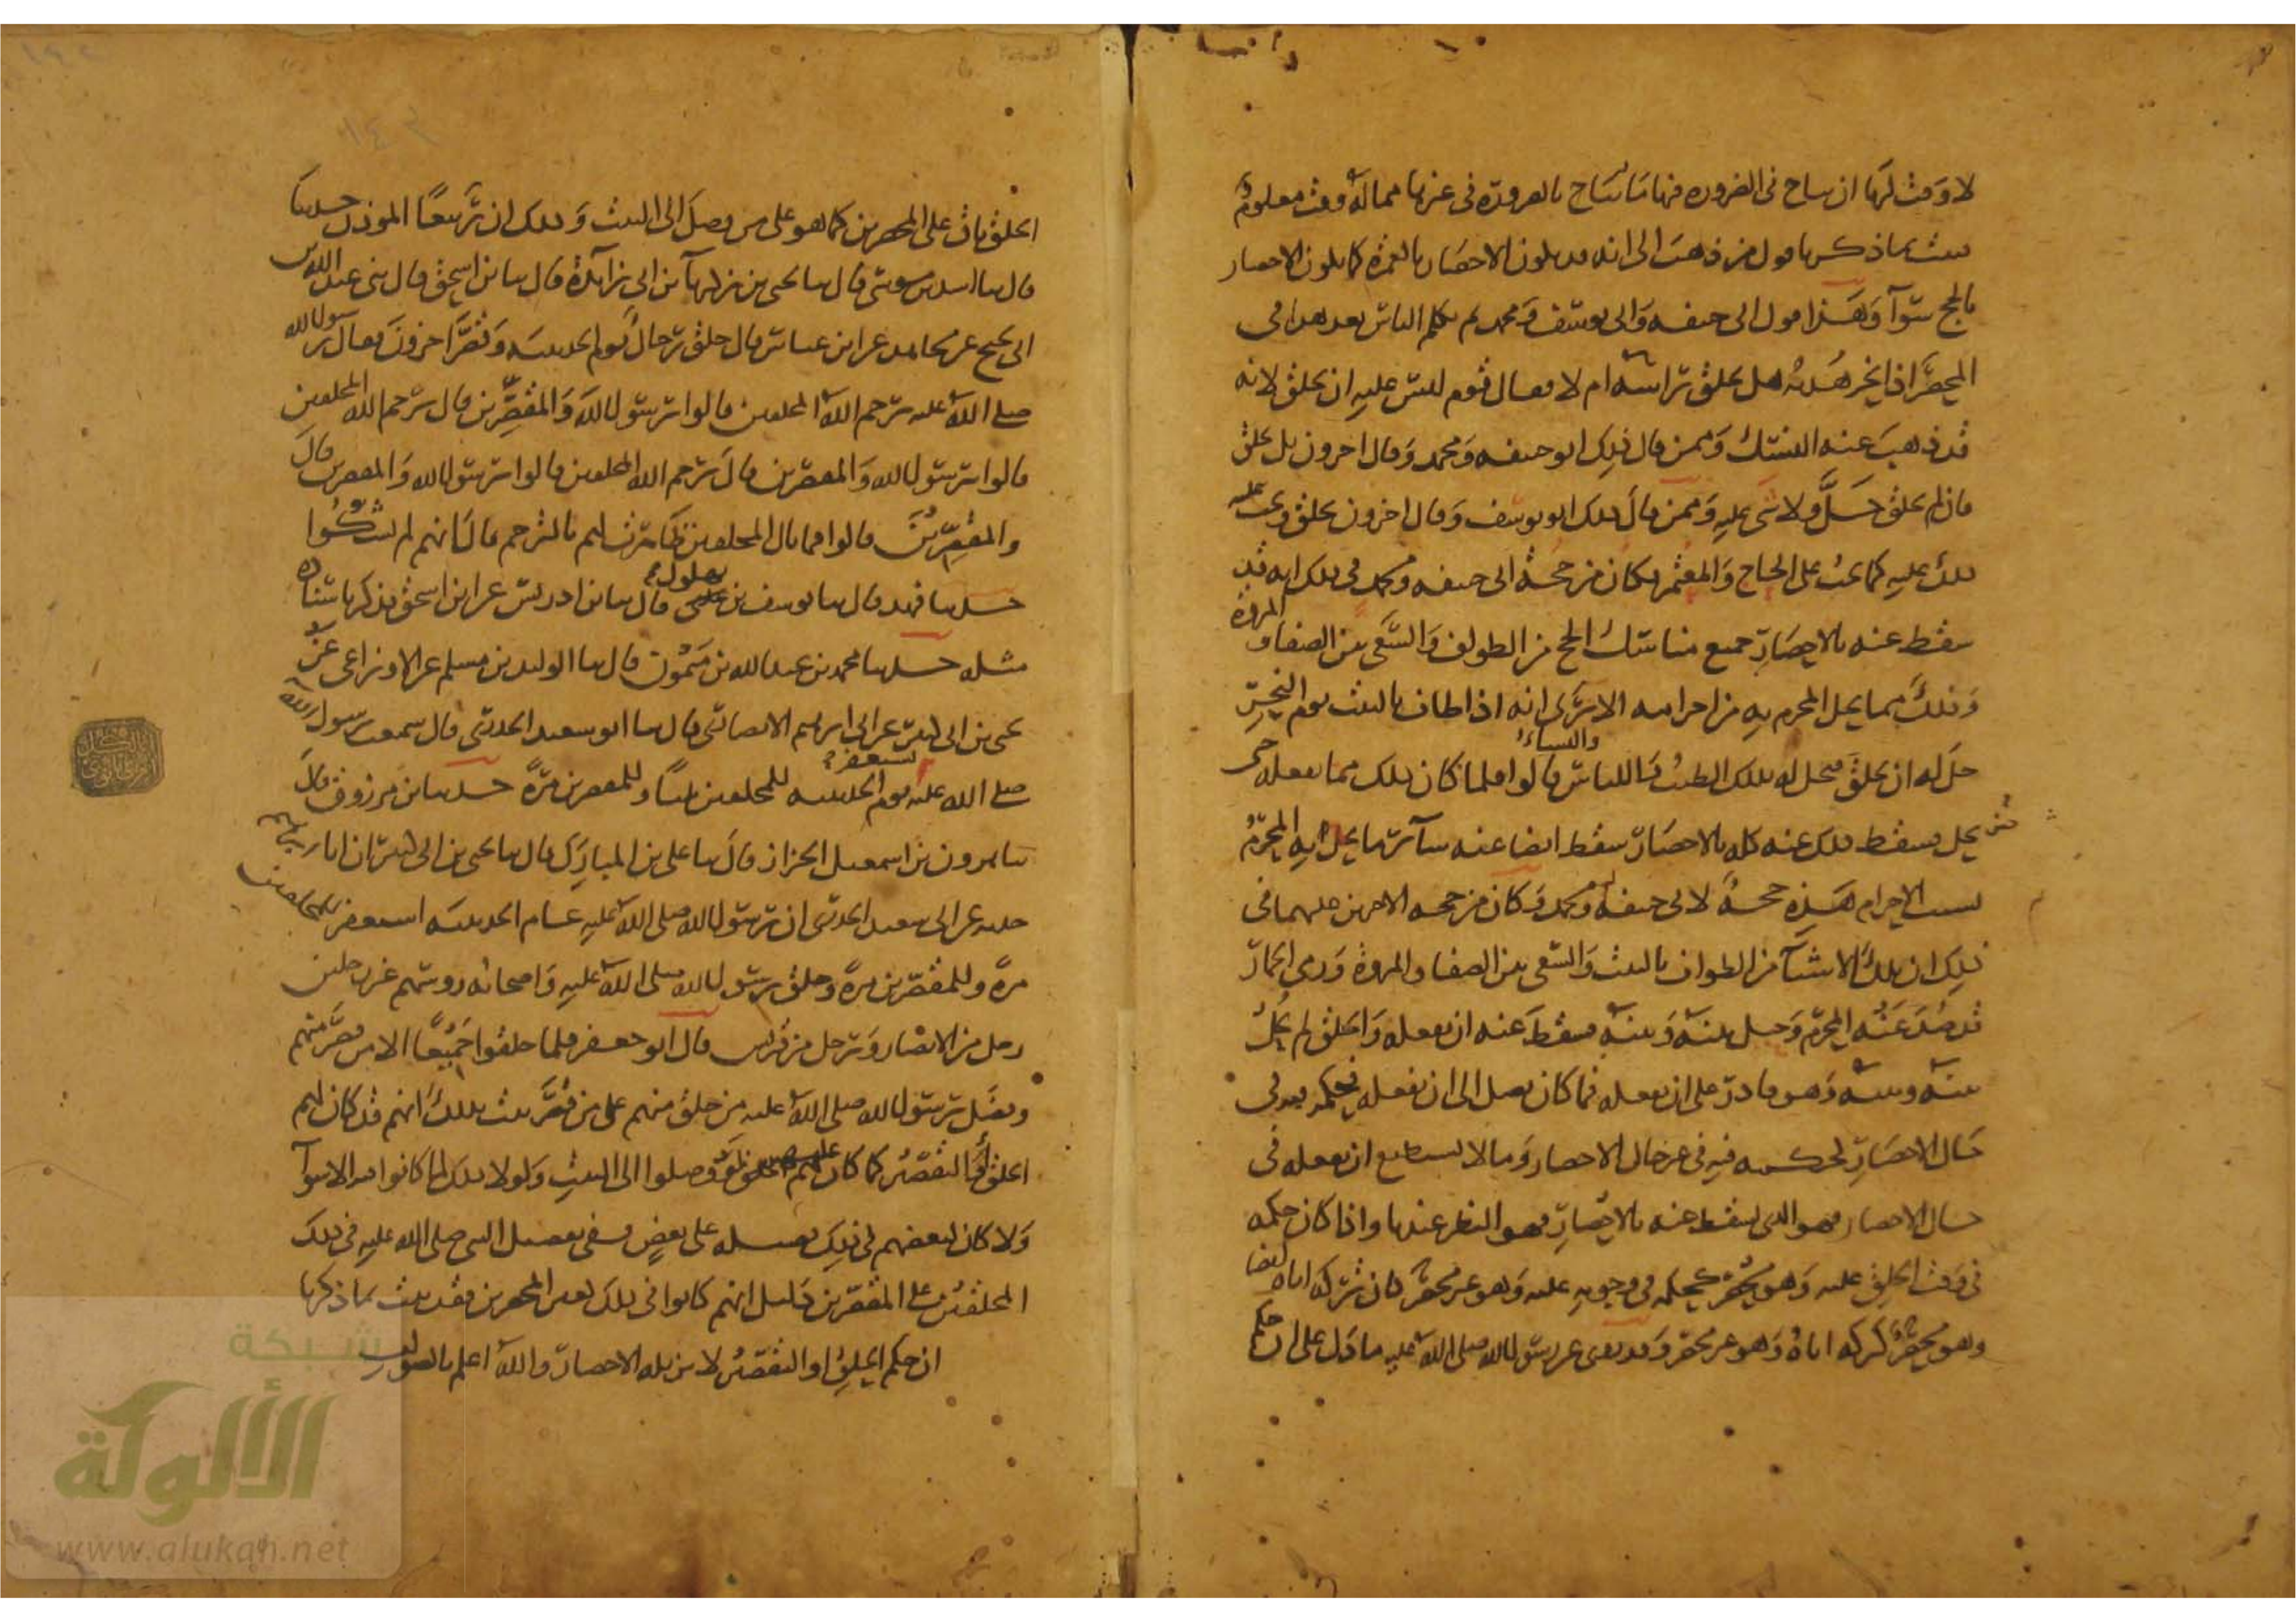 لا وقت لها ان يباح في الضرورة فيها ما يباح بالضرورة في غيرها مما له وقت معلوم
يثبت بما ذكرنا قول من ذهب الى انه قد يكون الاحصار بالعمرة كما يكون الاحصار
بالحج سواء وهذا قول ابي حنيفة وابي يوسف ومحمد ثم تكلم الناس بعد هذا في
المحصر اذا نحر هديه هل يحلق راسه ام لا فقال قوم ليس عليه ان يحلق لانه
قد ذهب عنه النسك وممن قال ذلك ابو حنيفة ومحمد وقال اخرون بل يحلق
فان لم يحلق حل ولا شي عليه وممن قال ذلك ابو يوسف وقال اخرون يحلق ويجب عليه
ذلك عليه كما يجب على الحاج والمعتمر فكان من حجة ابي حنيفة ومحمد في ذلك انه قد
سقط عنه بالاحصار جميع مناسك الحج من الطواف والسعي بين الصفا والمروة
وذلك مما يحل المحرم به من احرامه الا ترى انه اذا طاف بالبيت يوم النحر
حل له ان يحلق فيحل له بذلك الطيب واللباس والنساء قالوا فلما كان ذلك مما يفعله حتى
يحل فسقط ذلك عنه كله بالاحصار سقط ايضا عنه سائر ما يحل به المحرم
بسبب الاحرام هذه حجة لابي حنيفة ومحمد وكان من حجة الاخرين عليهما في
ذلك ان تلك الاشياء من الطواف بالبيت والسعي بين الصفا والمروة ورمي الجمار
قد صد عنه المحرم وحيل بينه وبينه فسقط عنه ان يفعله والحلق لم يحل
بينه وبينه وهو قادر على ان يفعله فما كان يصل الى ان يفعله فحكمه فيه في
حال الاحصار كحكمه فيه في غير حال الاحصار وما لا يستطيع ان يفعله في
حال الاحصار فهو الذي يسقط عنه بالاحصار فهو النظر عندنا واذا كان حكمه
في وقت الحلق عليه وهو محصر كحكمه في وجوبه عليه وهو غير محصر كان تركه اياه ايضا
وهو محصر كتركه اياه وهو غير محصر وقد روي عن رسول الله صلى الله عليه ما دل على ان حكم
الحلق باق على المحصرين كما هو على من وصل الى البيت وذلك ان ربيعا الموذن حدثنا
قال ثنا اسد بن موسى قال ثنا يحيى بن زكريا بن ابي زائدة قال ثنا ابن اسحق قال ثني عبد الله بن
ابي نجيح عن مجاهد عن ابن عباس قال حلق رجال يوم الحديبية وقصر اخرون فقال رسول الله
صلى الله عليه يرحم الله المحلقين قالوا يا رسول الله والمقصرين قال يرحم الله المحلقين
قالوا يا رسول الله والمقصرين قال يرحم الله المحلقين قالوا يا رسول الله والمقصرين قال
والمقصرين قالوا فما بال المحلقين ظاهرت لهم بالترحم قال انهم لم يشكوا
حدثنا فهد قال ثنا يوسف بن بهلول قال ثنا ابن ادريس عن ابن اسحق فذكر باسناده
مثله حدثنا محمد بن عبد الله بن ميمون قال ثنا الوليد بن مسلم عن الاوزاعي عن
يحيى بن ابي كثير عن ابي ابراهيم الانصاري قال ثنا ابو سعيد الخدري قال سمعت رسول الله
صلى الله عليه يوم الحديبية يستغفر للمحلقين ثلثا وللمقصرين مرة حدثنا ابن مرزوق قال
ثنا هرون بن اسمعيل الخزاز قال ثنا علي بن المبارك قال ثنا يحيى بن ابي كثير ان ابا ابراهيم
حدثه عن ابي سعيد الخدري ان رسول الله صلى الله عليه عام الحديبية استغفر للمحلقين
مرة وللمقصرين مرة وحلق رسول الله صلى الله عليه واصحابه روسهم غير رجلين
رجل من الانصار ورجل من قريش قال ابو جعفر فلما حلقوا جميعا الا من قصر منهم
وفضل رسول الله صلى الله عليه من حلق منهم على من قصر ثبت بذلك انهم قد كان لهم
الحلق او التقصير كما كان عليهم لو وصلوا الى البيت ولولا ذلك لما كانوا فيه الا سواء
ولا كان لبعضهم في ذلك فضيلة على بعض ففي تفضيل النبي صلى الله عليه في ذلك
المحلقين على المقصرين دليل انهم كانوا في ذلك كغير المحصرين فقد ثبت بما ذكرنا
ان حكم الحلق او التقصير لا يزيله الاحصار والله اعلم بالصواب
شبكة
الألوكة
www.alukah.net